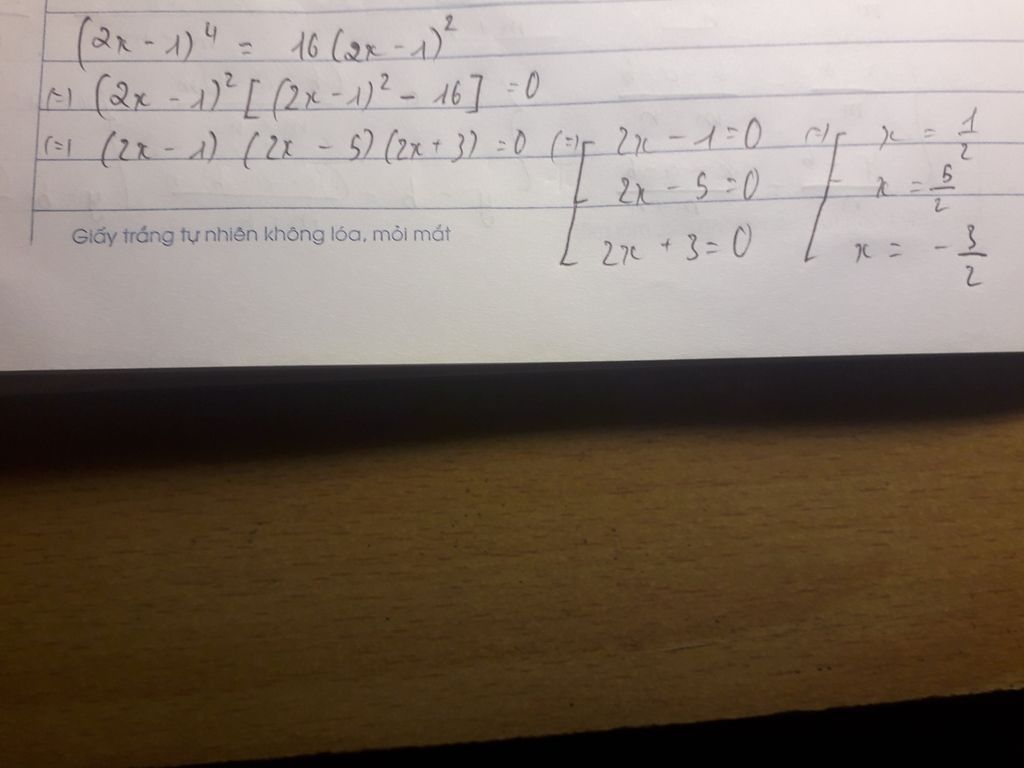 (2x - 1)⁴ = 16(2x - 1)²
(=) (2x - 1)² [(2x - 1)² - 16] = 0
(=) (2x - 1) (2x - 5) (2x + 3) = 0 (=) [ 2x - 1 = 0 (=) [ x = 1/2
2x - 5 = 0 x = 5/2
2x + 3 = 0 x = - 3/2
Giấy trắng tự nhiên không lóa, mỏi mắt